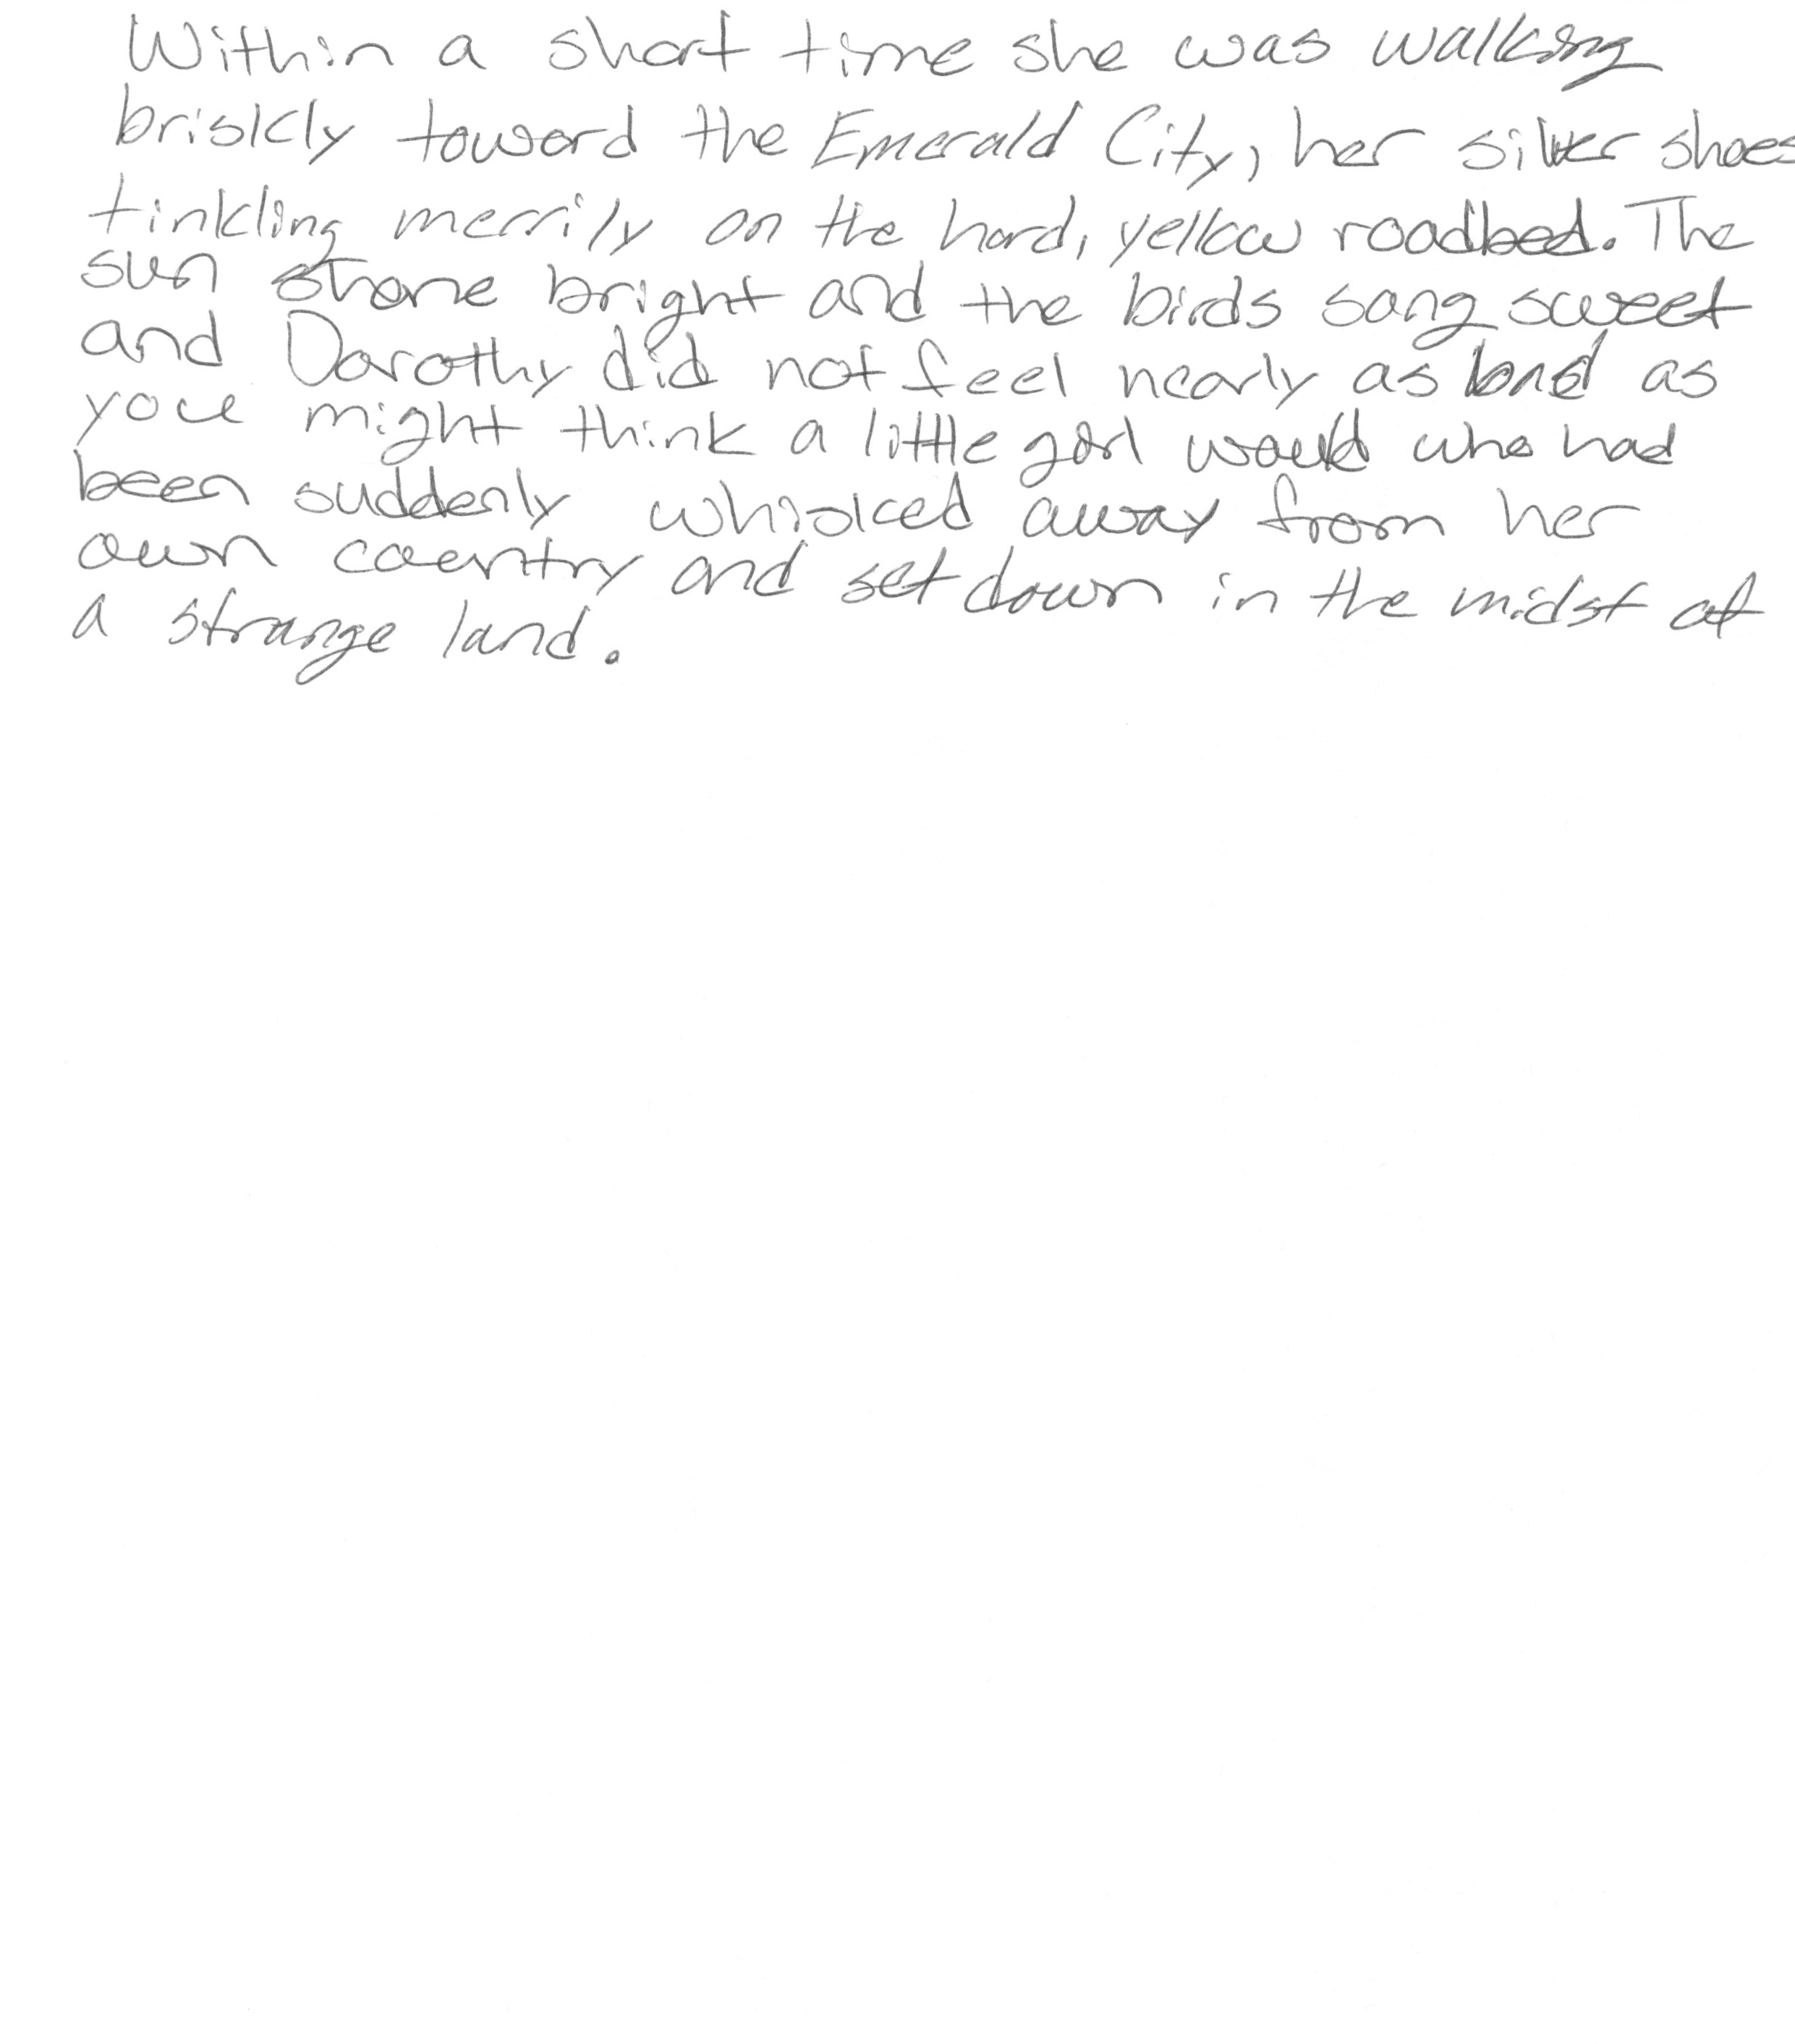 Within a short time she was walking
briskly toward the Emerald City, her silver shoes
tinkling merrily on the hard, yellow roadbed. The
sun shone bright and the birds sang sweet
and Dorothy did not feel nearly as bad as
you might think a little girl would who had
been suddenly whisked away from her
own country and set down in the midst of
a strange land.